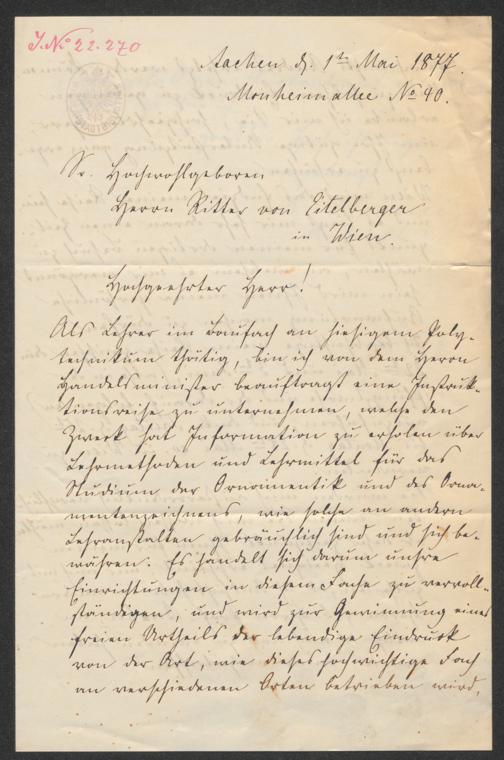 J. No 22.270
Aachen d. 1ten Mai 1877.
Monheimallee No 40.
Sr. Hochwohlgeboren
Herrn Ritter von Eitelberger
in Wien.
Hochgeehrter Herr!
Als Lehrer im Baufach an hiesigem Poly-
technikum thätig, bin ich von dem Herrn
Handelsminister beauftragt eine Instruk-
tionsreise zu unternehmen, welche den
Zweck hat Information zu erholen über
Lehrmethoden und Lehrmittel für das
Studium der Ornamentik und des Orna-
mentenzeichnens, wie solche an andern
Lehranstalten gebräuchlich sind und sich be-
währen. Es handelt sich darum unsre
Einrichtungen in diesem Fache zu vervoll-
ständigen, und wird zur Gewinnung eines
freien Urtheils der lebendige Eindruck
von der Art, wie dieses hochwichtige Fach
an verschiedenen Orten betrieben wird,